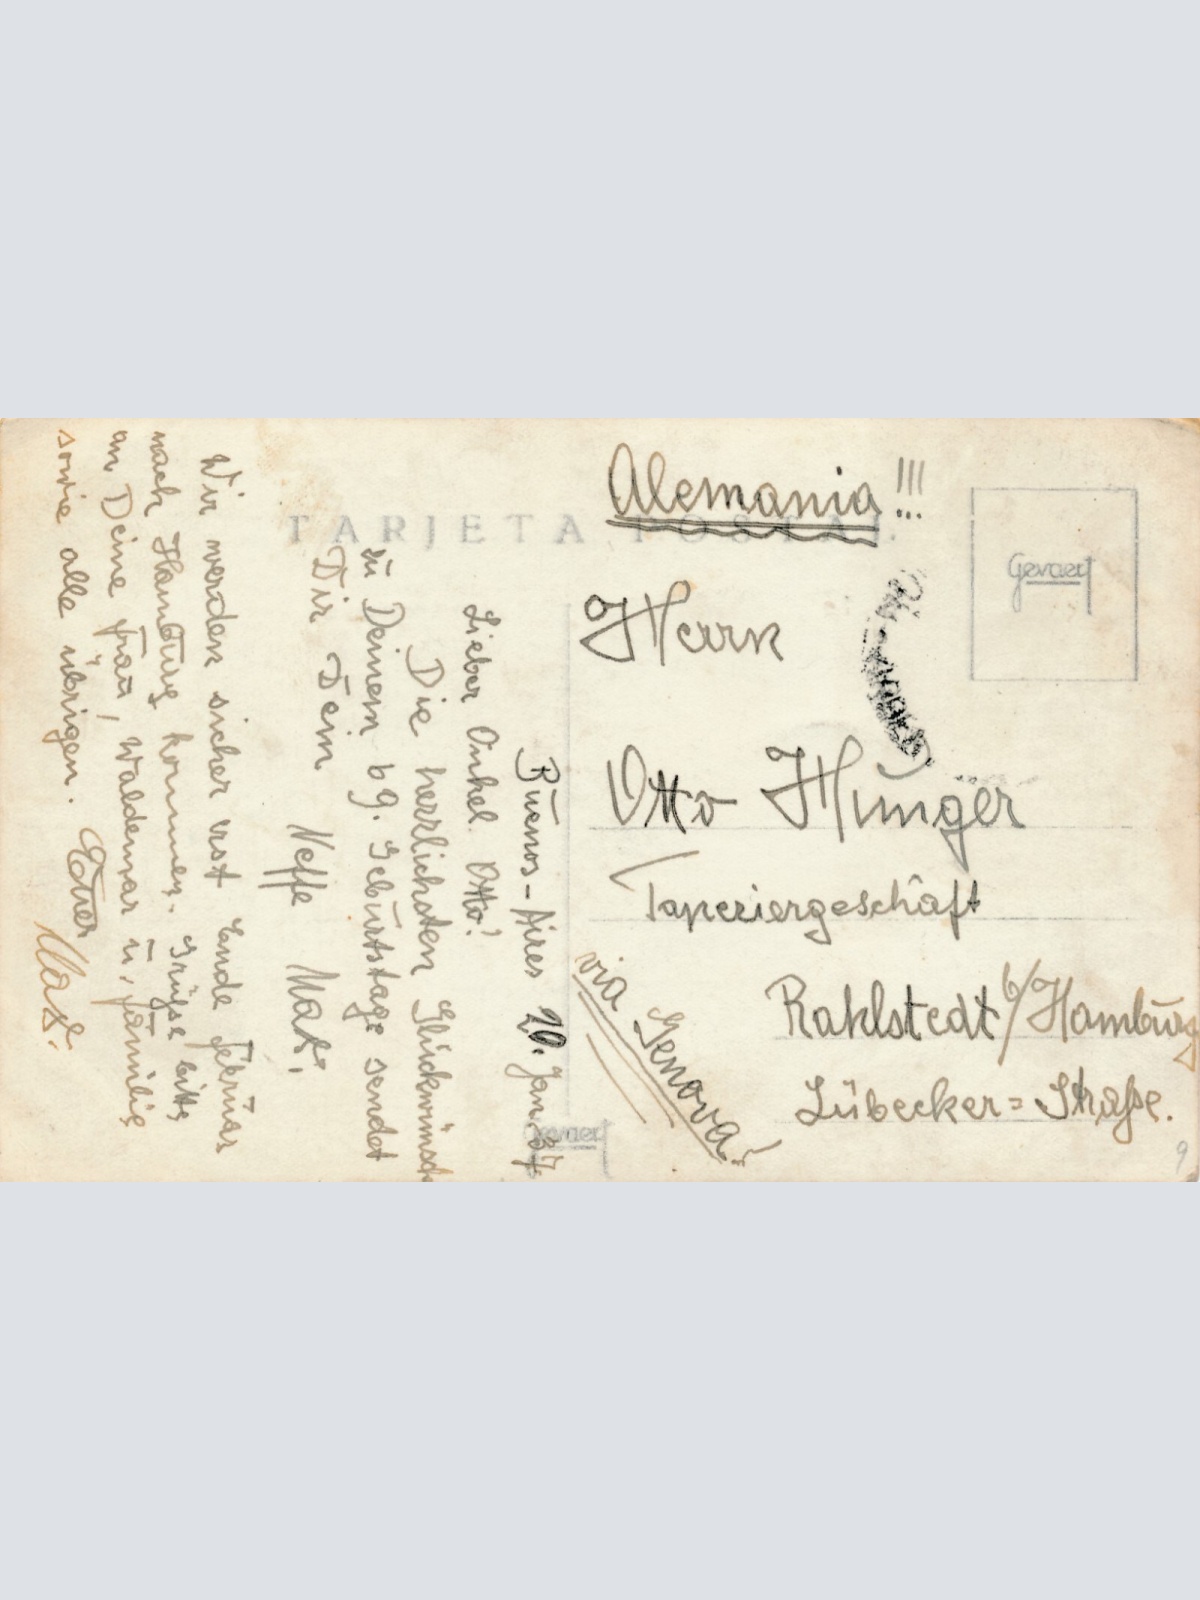 TARJETA POSTAL
Alemania!!!
Gevaert
Herrn
Otto Hunger
Tapeziergeschäft
Rahlstedt b/Hamburg
Lübecker=Straße.
via Genova!
Buenos-Aires 20. Jan. 37.
Lieber Onkel Otto!
Die herzlichsten Glückwünsche
zu Deinem 69. Geburtstage sendet
Dir Dein Neffe Max.
Wir werden sicher erst Ende Februar
nach Hamburg kommen. Grüße bitte
an Deine Frau, Waldemar u. Familie
sowie alle übrigen. Euer
Max.
Gevaert
9